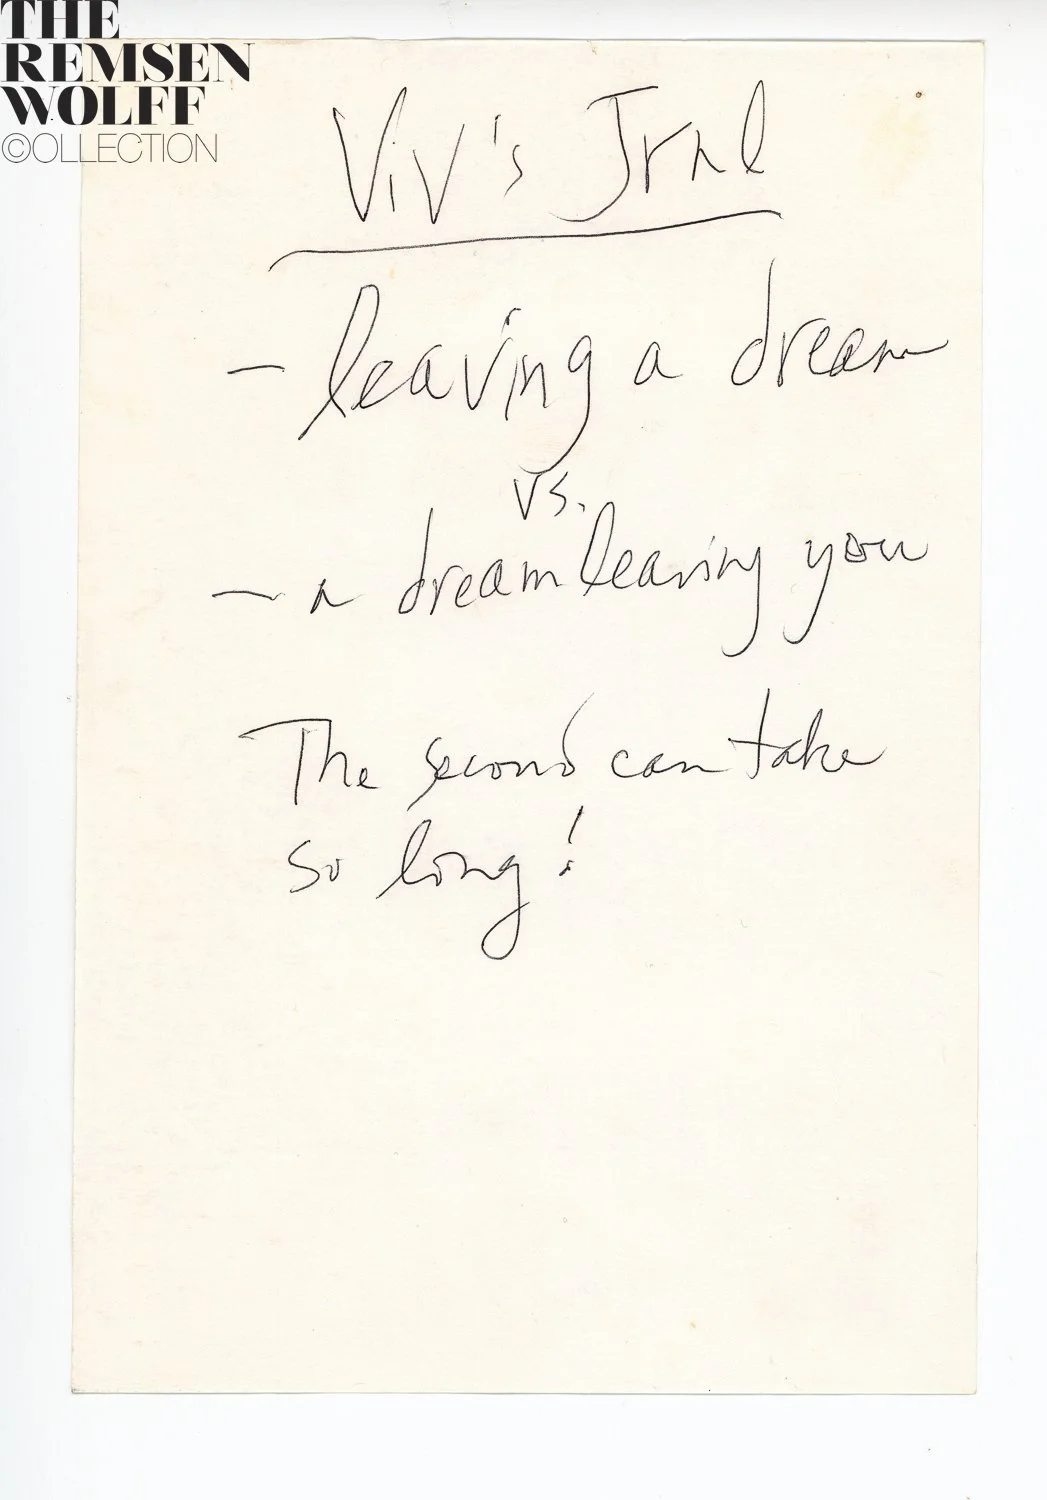 THE
REMSEN
WOLFF
©OLLECTION
Viv's Jrnl
- leaving a dream
vs.
- a dream leaving you
The second can take
so long!